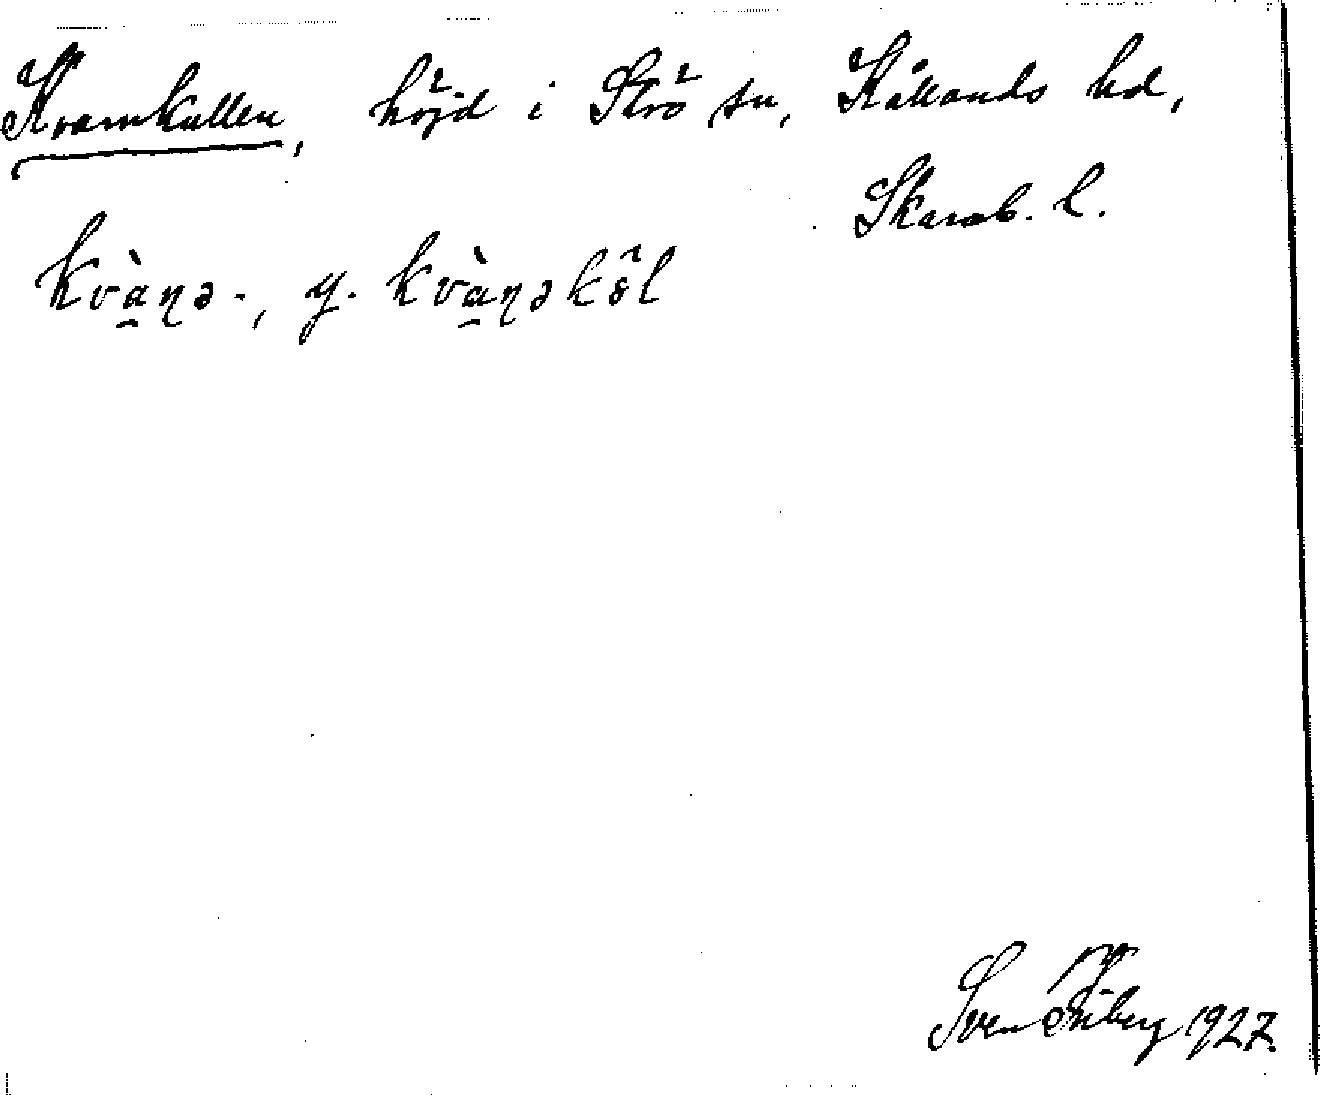 Kvarnkullen, höjd i Strö sn, Kållands hd,
Skarab. l.
kvàɳə-, y. kvàɳəkôl
Sven Friberg 1927.